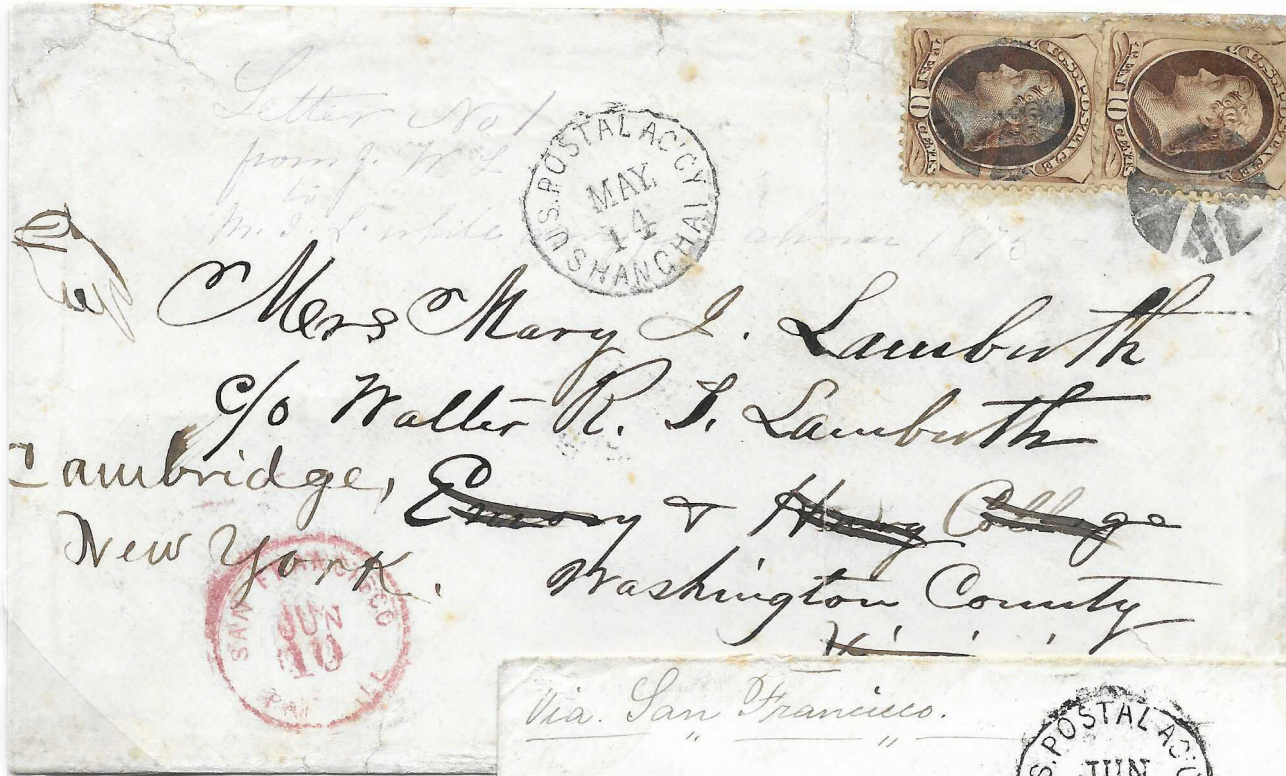 U.S. POSTAGE
10
CENTS
U.S. POSTAGE
10
CENTS
Letter No 1
from J. W. L
to
M. I. L. while 1876
U.S. POSTAL AG'CY
MAY.
14
SHANGHAI
Mrs Mary I. Lambuth
c/o Walter R. L. Lambuth
Cambridge,
Emory & Henry College
New York.
Washington County
SAN FRANCISCO
JUN
10
PAID ALL
Via. San Francisco.
U.S. POSTAL AG'CY
JUN